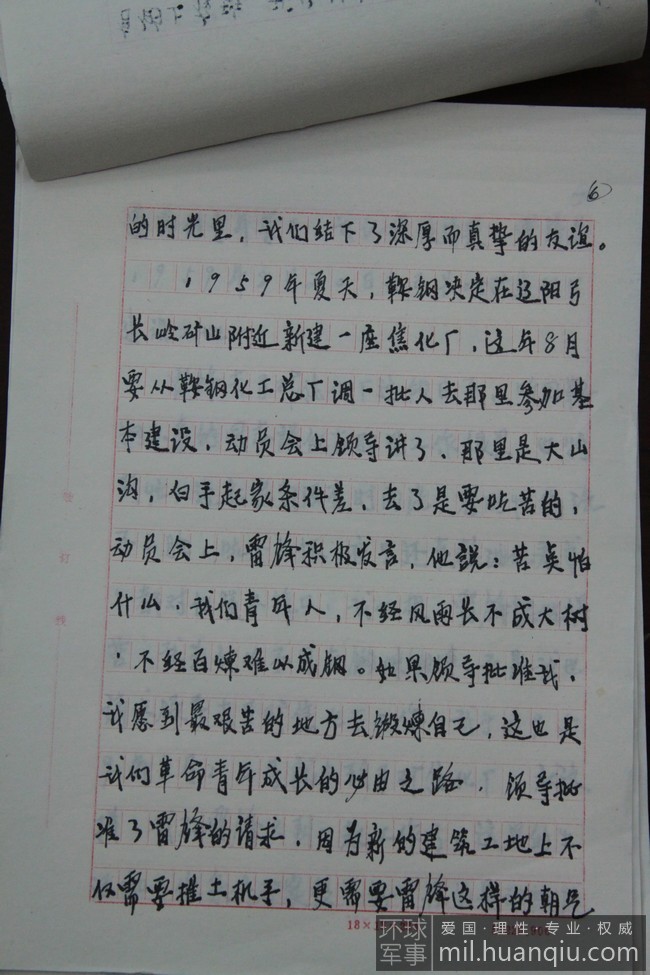 6
的时光里，我们结下了深厚而真挚的友谊。
1959年夏天，鞍钢决定在辽阳弓
长岭矿山附近新建一座焦化厂，这年8月
要从鞍钢化工总厂调一批人去那里参加基
本建设，动员会上领导讲了，那里是大山
沟，白手起家条件差，去了是要吃苦的，
动员会上，雷锋积极发言，他説：苦奌怕
什么，我们青年人，不经风雨长不成大树
，不经百炼难以成钢。如果领导批准我，
我愿到最艰苦的地方去锻炼自己，这也是
我们革命青年成长的必由之路，领导批
准了雷锋的请求，因为新的建筑工地上不
仅需要推土机手，更需要雷锋这样的朝气
18×
装
订
线
环球
军事
爱国·理性·专业·权威
mil.huanqiu.com